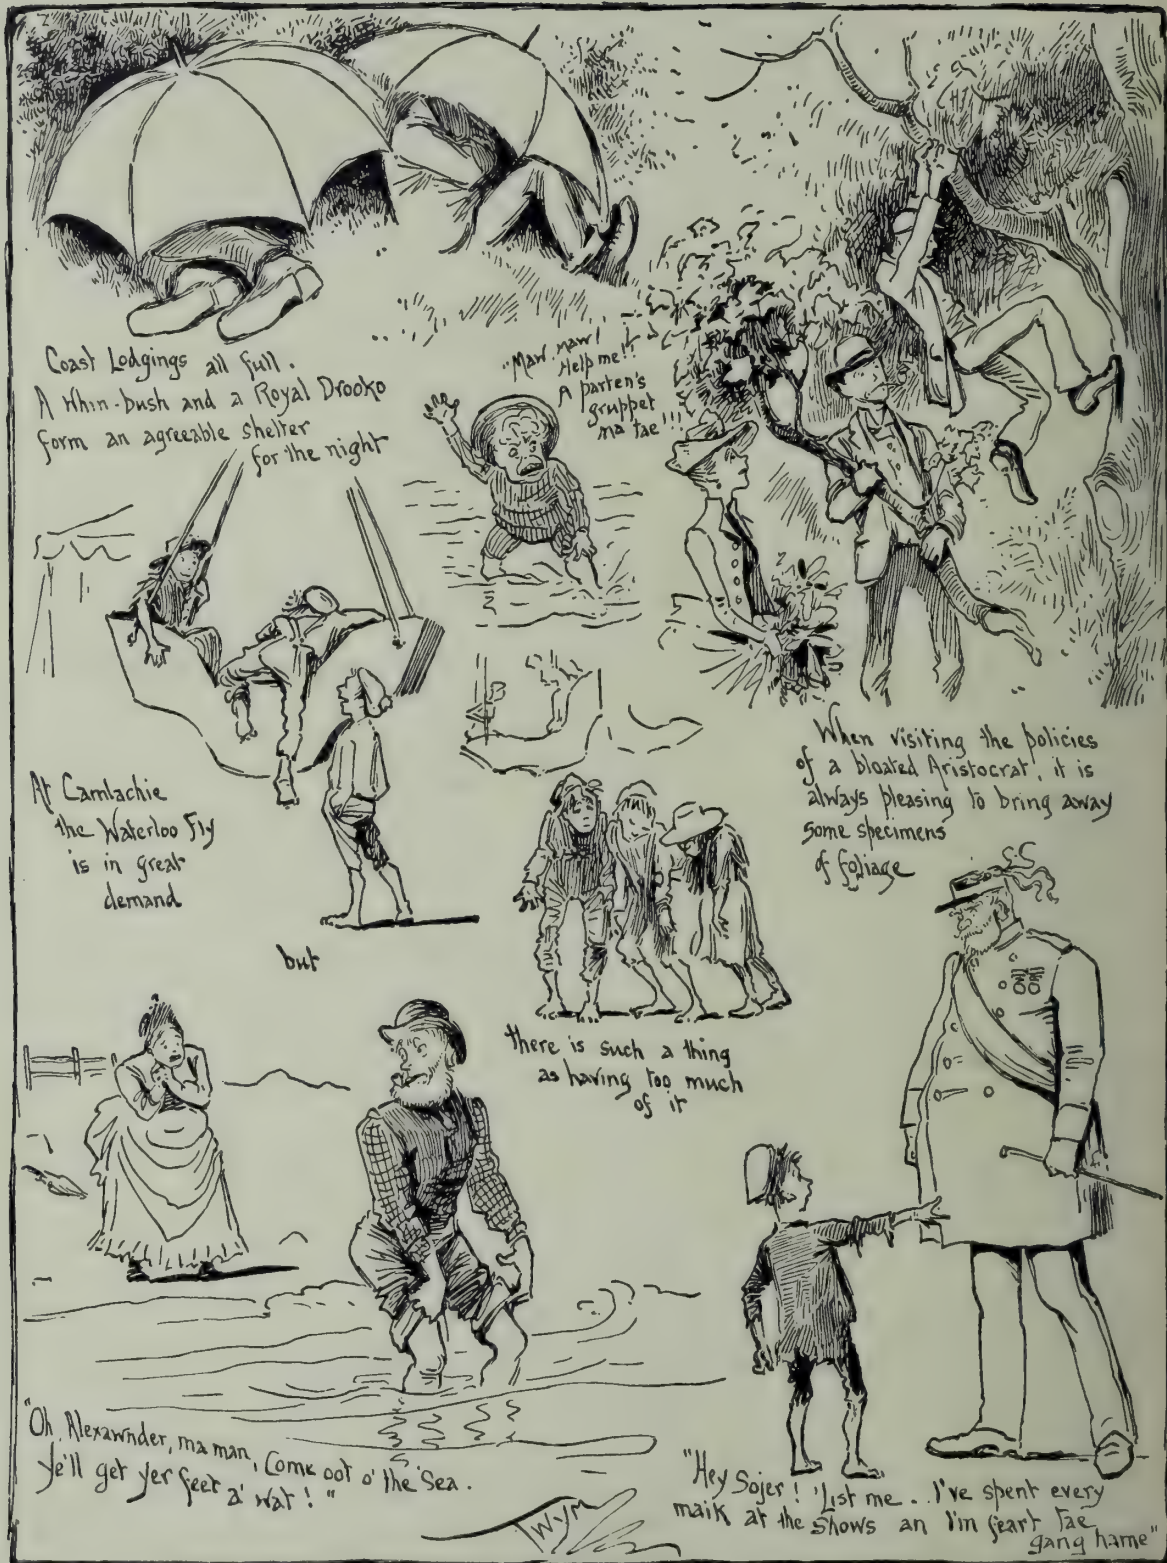 Coast Lodgings all full.
A Whin-bush and a Royal Drooko
form an agreeable shelter
for the night
"Maw, maw!
Help me!!
A parten's
gruppet
ma tae"!!!
When visiting the policies
of a bloated Aristocrat, it is
always pleasing to bring away
some specimens
of foliage
At Camlachie
the Waterloo Fly
is in great
demand
but
there is such a thing
as having too much
of it
"Oh, Alexawnder, ma man, Come oot o' the Sea.
Ye'll get yer feet a' wat!"
"Hey Sojer! 'List me... I've spent every
maik at the Shows an I'm feart tae
gang hame"
Twym